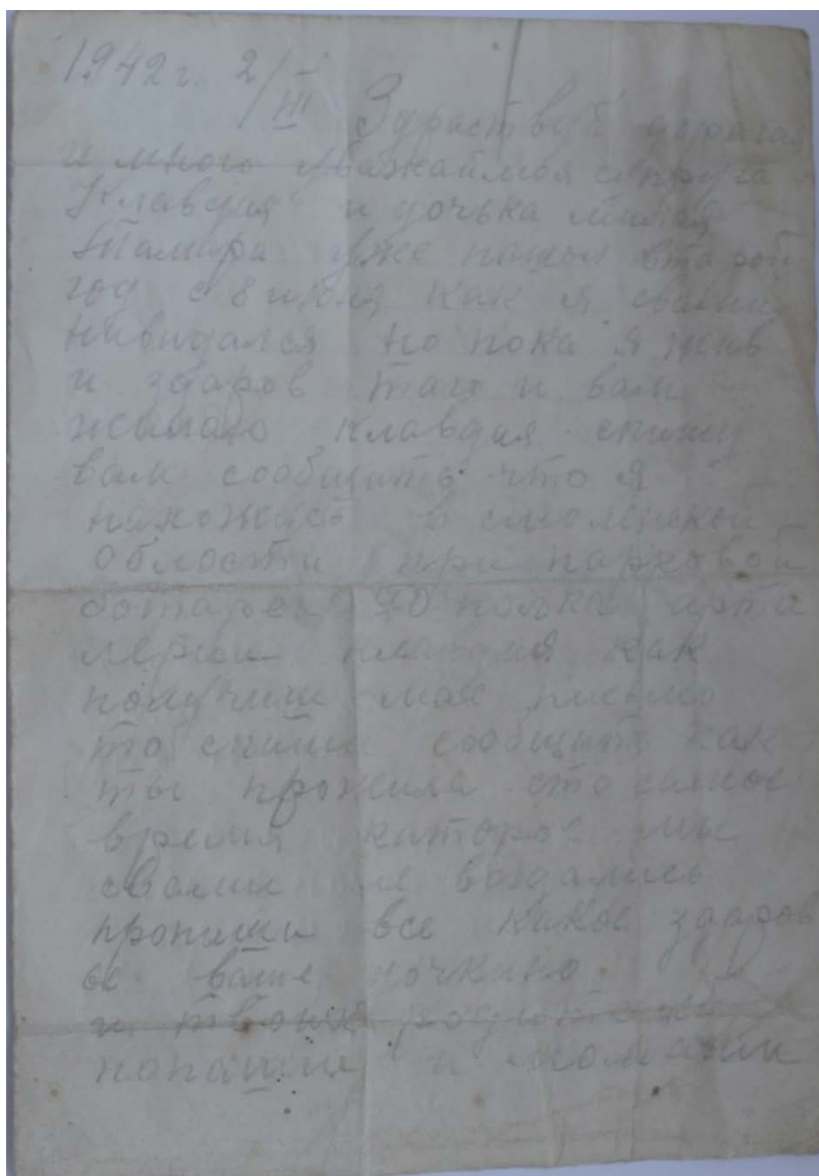 1942 г. 2/III Здраствуй дорогая
и много уважаймая супруга
Клавдия и дочька милая
Тамара уже пашол второй
год с 8 июля как я свами
нивидался но пока я жив
и здаров таго и вам
жилаю клавдия спишу
вам сообщить что я
нахожусь в смоленской
области при парковой
ботареи 70 полка арта
лерии клавдия как
получиш маё письмо
то спиши сообщить как
ты прожила это самое
время каторое мы
свами не видались
пропиши все какое здаров
ье ваше дочкино
и твоих родителей
попаши и мамаши